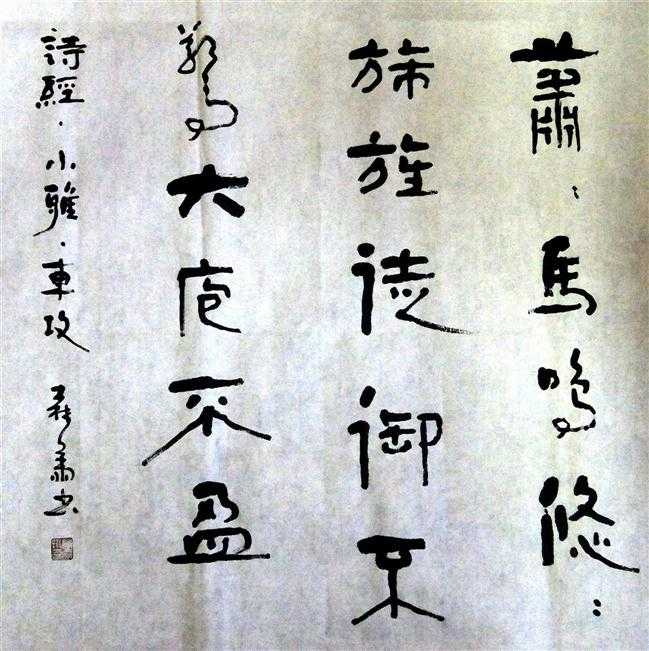 蕭〻馬鳴悠〻
旆旌徒御不
驚大庖不盈
詩經·小雅·車攻 书